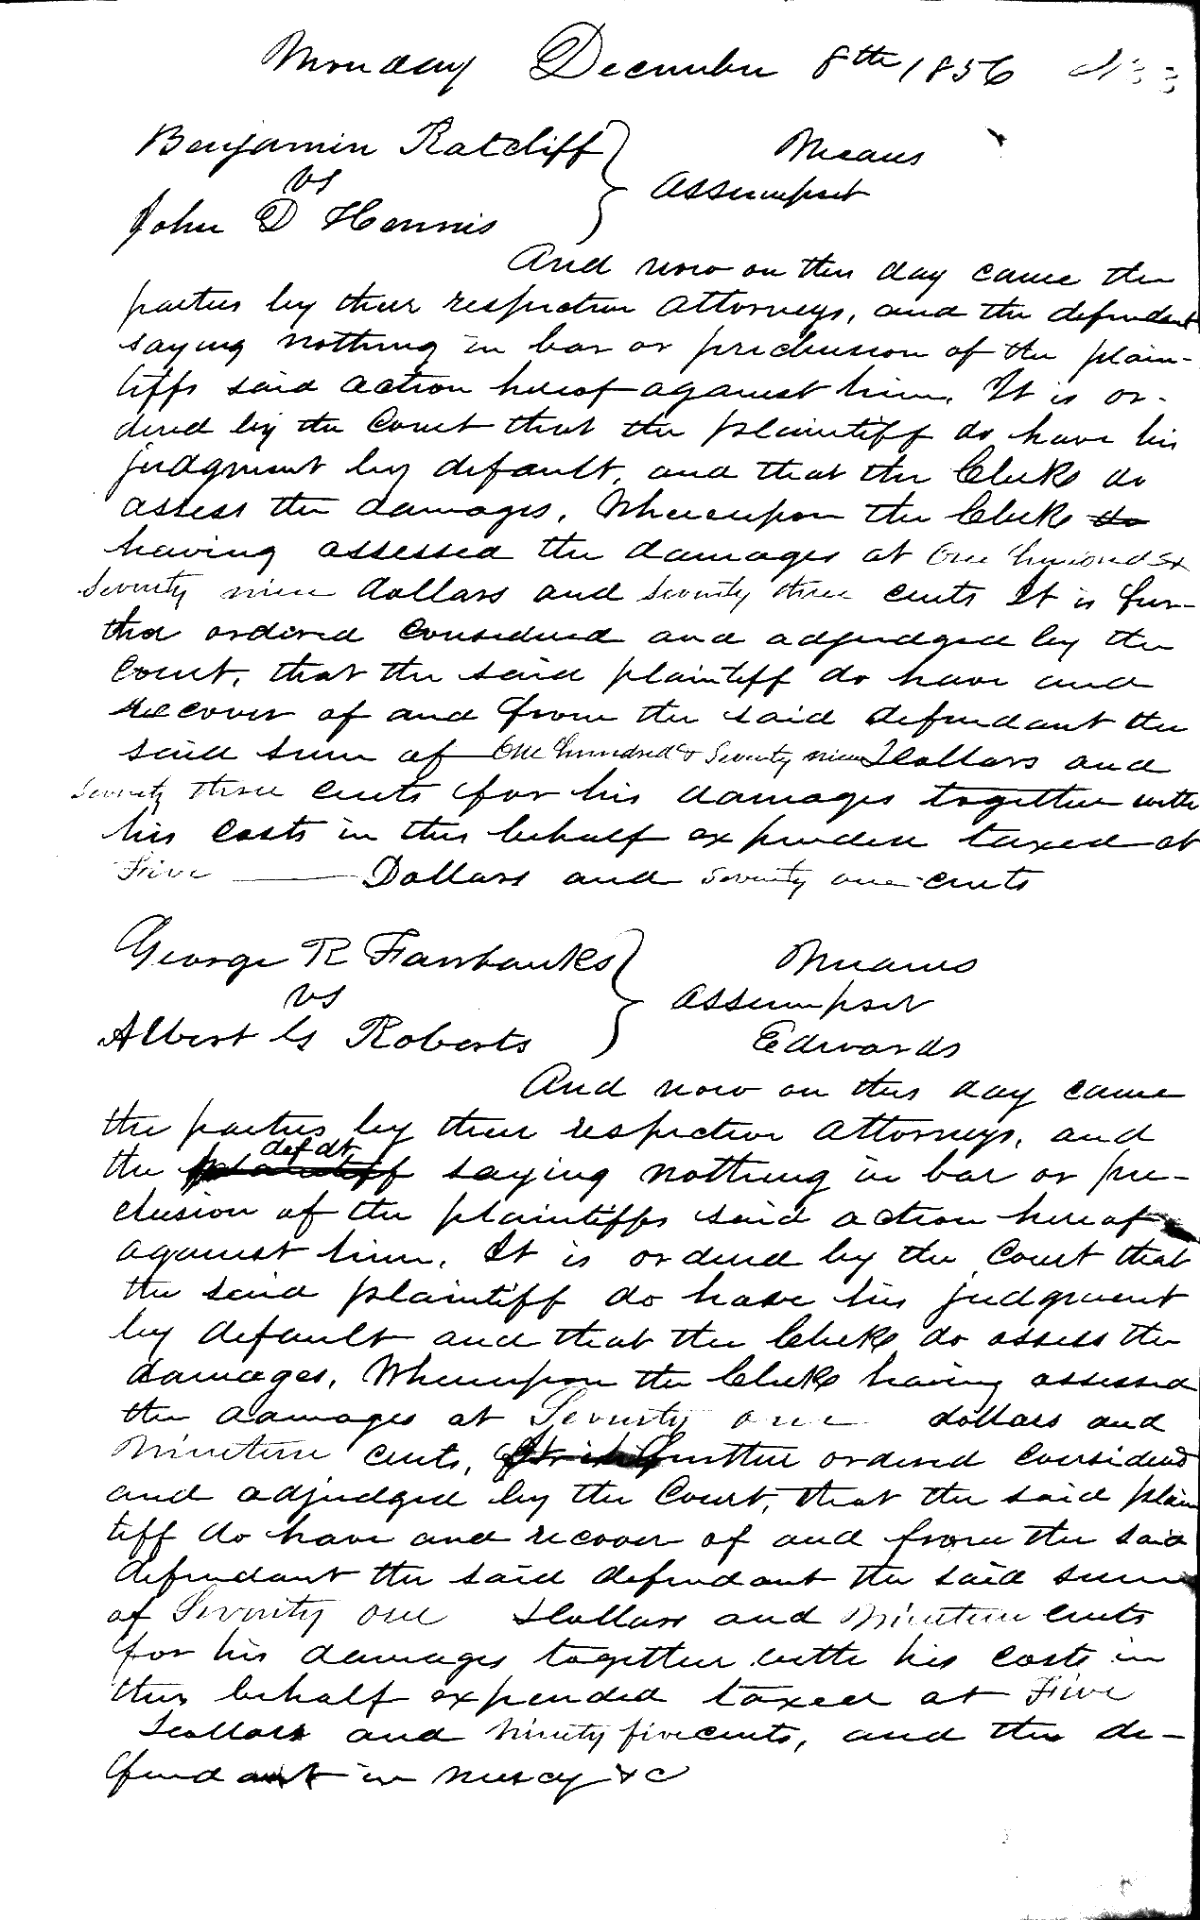 Monday December 8th, 1856
Benjamin Ratcliff Means
vs Assumpsit
John D Hennis
And now on this day came the
parties by their respective attorneys, and the defendant
saying nothing in bar or preclusion of the plain-
tiffs said action hereof against him. It is or-
dered by the Court that the plaintiff do have his
judgment by default, and that the Clerk do
assess the damages. Whereupon the Clerk do
having assessed the damages at One hundred &
Seventy nine dollars and Seventy three cents It is fur-
ther ordered considered and adjudged by the
Court, that the said plaintiff do have and
recover of and from the said defendant the
said sum of One hundred & Seventy nine Dollars and
Seventy three cents for his damages together with
his costs in this behalf expended taxed at
Five Dollars and Seventy one cents
George R Fairbanks Means
vs Assumpsit
Albert G Roberts Edwards
And now on this day came
the parties by their respective attorneys, and
the plaintiff defdt saying nothing in bar or pre-
clusion of the plaintiffs said action hereof
against him. It is ordered by the Court that
the said plaintiff do have his judgment
by default and that the Clerk do assess the
damages. Whereupon the Clerk having assessed
the damages at Seventy one dollars and
Nineteen cents, It is further ordered considered
and adjudged by the Court, that the said plain
tiff do have and recover of and from the said
defendant the said defendant the said sum
of Seventy one Dollars and Nineteen cents
for his damages together with his costs in
this behalf expended taxed at Five
Dollars and Ninety five cents, and the de-
fendant in mercy &c